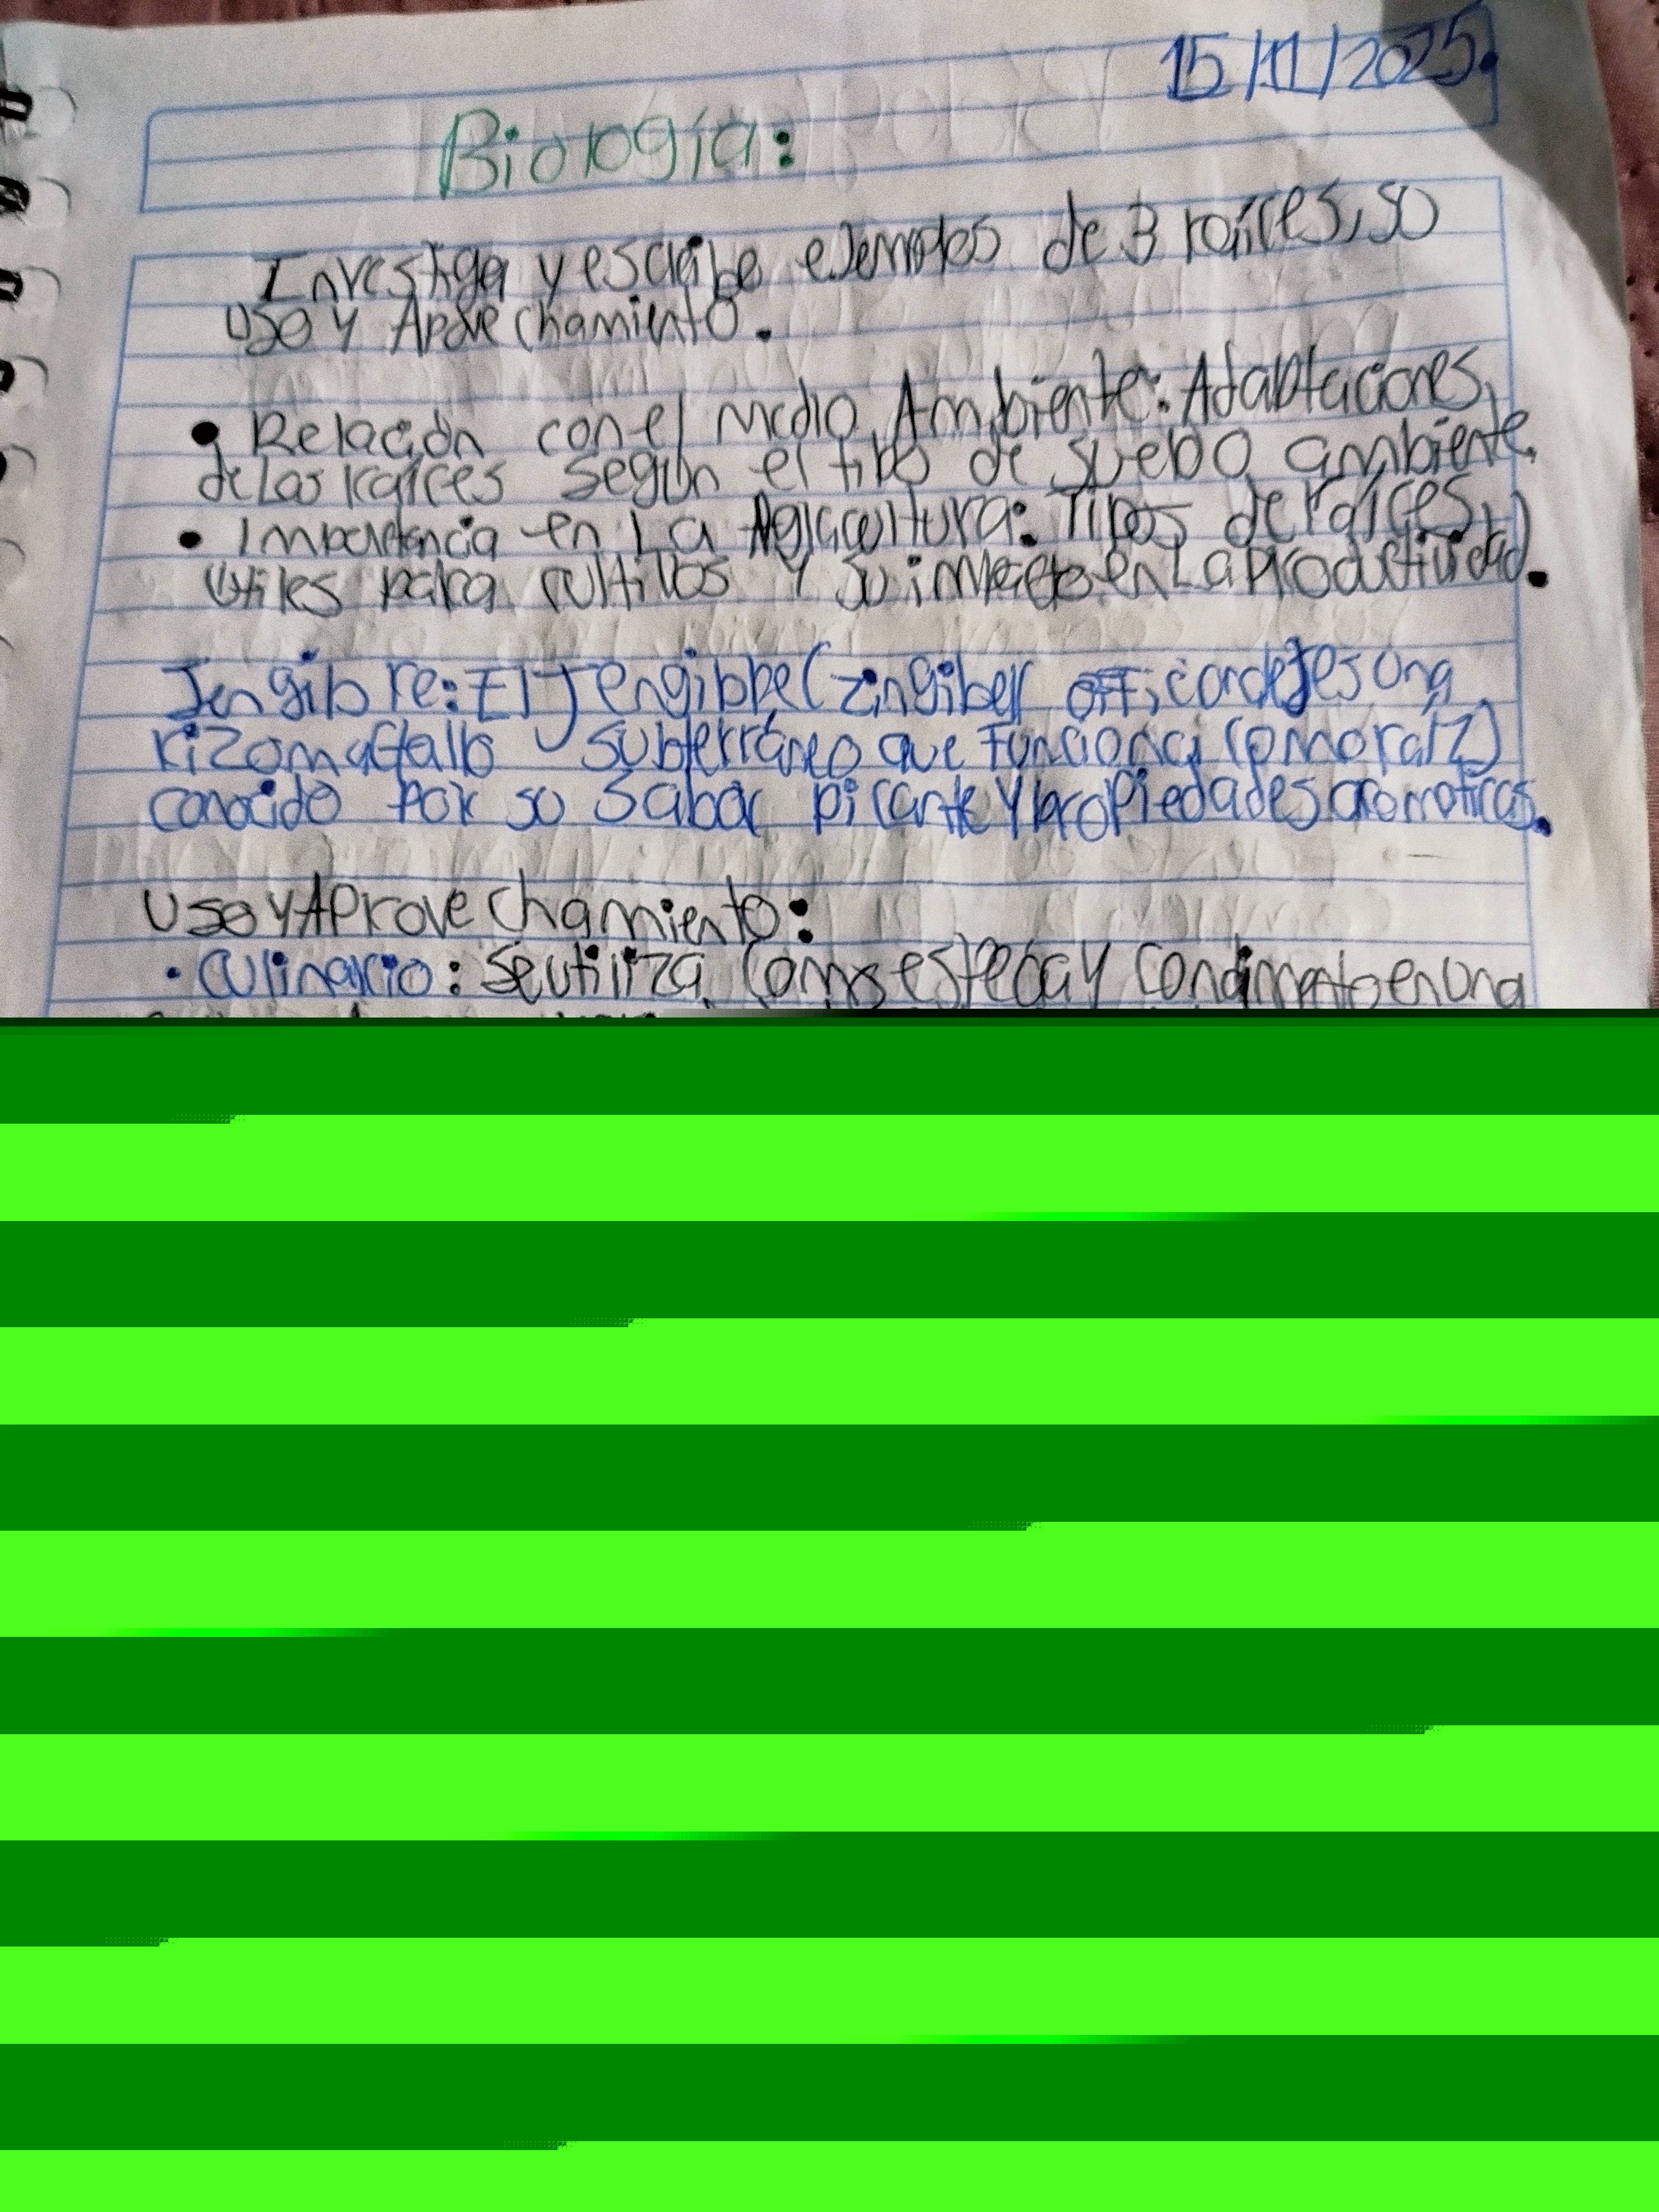 15/11/2025.
Biología:
Investiga y escribe ejemplos de 3 raíces, so
uso y Aprovechamiento.
• Relación con el medio Ambiente: Adaptaciones
de Las raíces según el tipo de suelo o ambiente.
• Importancia en La Agricultura: Tipos de raíces
útiles para cultivos y su impacto en La productividad.
Jengibre: El Jengibre (Zingiber es una
rizoma (tallo subterráneo que funciona como raíz)
conocido por su sabor picante y propiedades aromáticas.
Uso y Aprovechamiento:
• Culinario: Se utiliza como especia y condimento en una